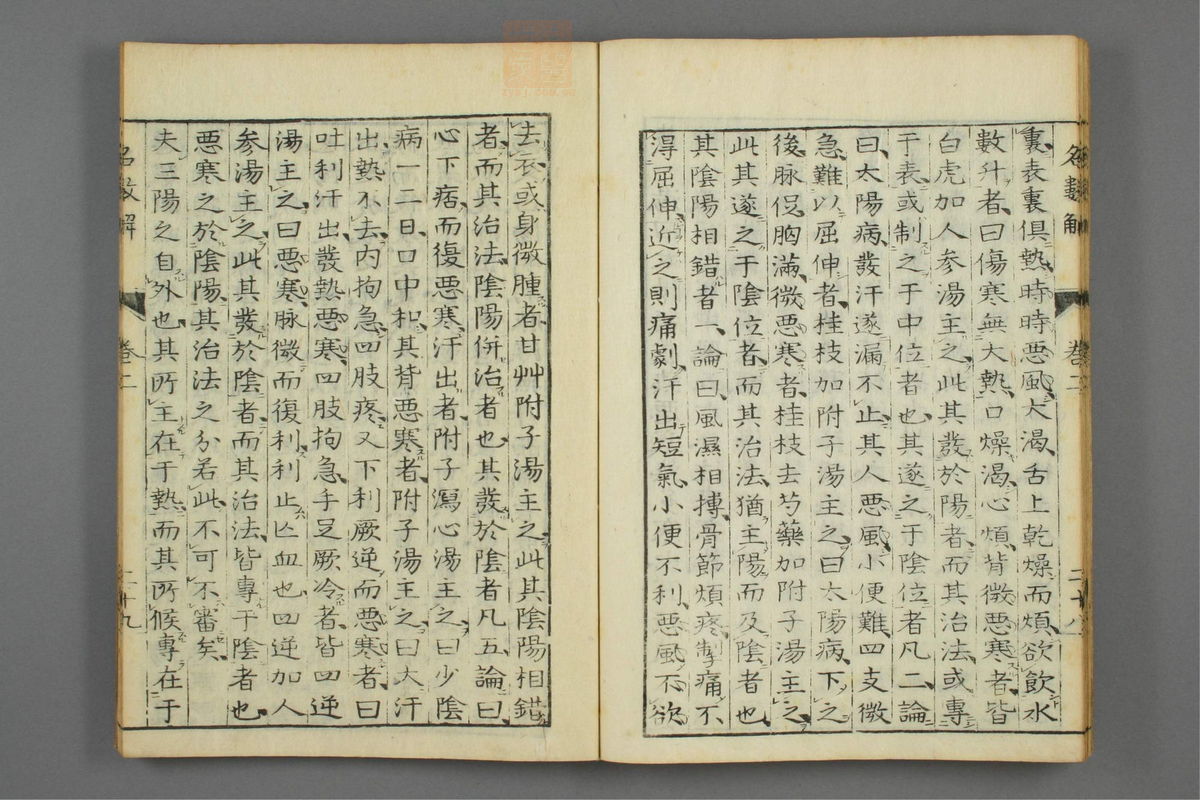 裏表裏俱熱時時悪風大渴舌上乾燥而煩欲飲水
數升者曰傷寒無大熱口燥渴心煩背微悪寒者皆
白虎加人参湯主之此其發於陽者而其治法或專
于表或制之于中位者也其遂之于陰位者凡二論
曰太陽病發汗遂漏不止其人悪風小便難四支微
急難以屈伸者桂枝加附子湯主之曰太陽病下之
後脉促胸滿微悪寒者桂枝去芍藥加附子湯主之
此其遂之于陰位者而其治法猶主陽而及陰者也
其陰陽相錯者一論曰風濕相搏骨節煩疼掣痛不
得屈伸近之則痛劇汗出短氣小便不利悪風不欲
去衣或身微腫者甘艸附子湯主之此其陰陽相錯
者而其治法陰陽併治者也其發於陰者凡五論曰
心下痞而復悪寒汗出者附子瀉心湯主之曰少陰
病一二日口中和其背悪寒者附子湯主之曰大汗
出熱不去内拘急四肢疼又下利厥逆而悪寒者曰
吐利汗出發熱悪寒四肢拘急手足厥冷者皆四逆
湯主之曰悪寒脉微而復利利止亾血也四逆加人
参湯主之此其發於陰者而其治法皆專于陰者也
悪寒之於陰陽其治法之分若此不可不審矣
夫三陽之自外也其所主在于熱而其所候專在于
名數解 卷二 二十九